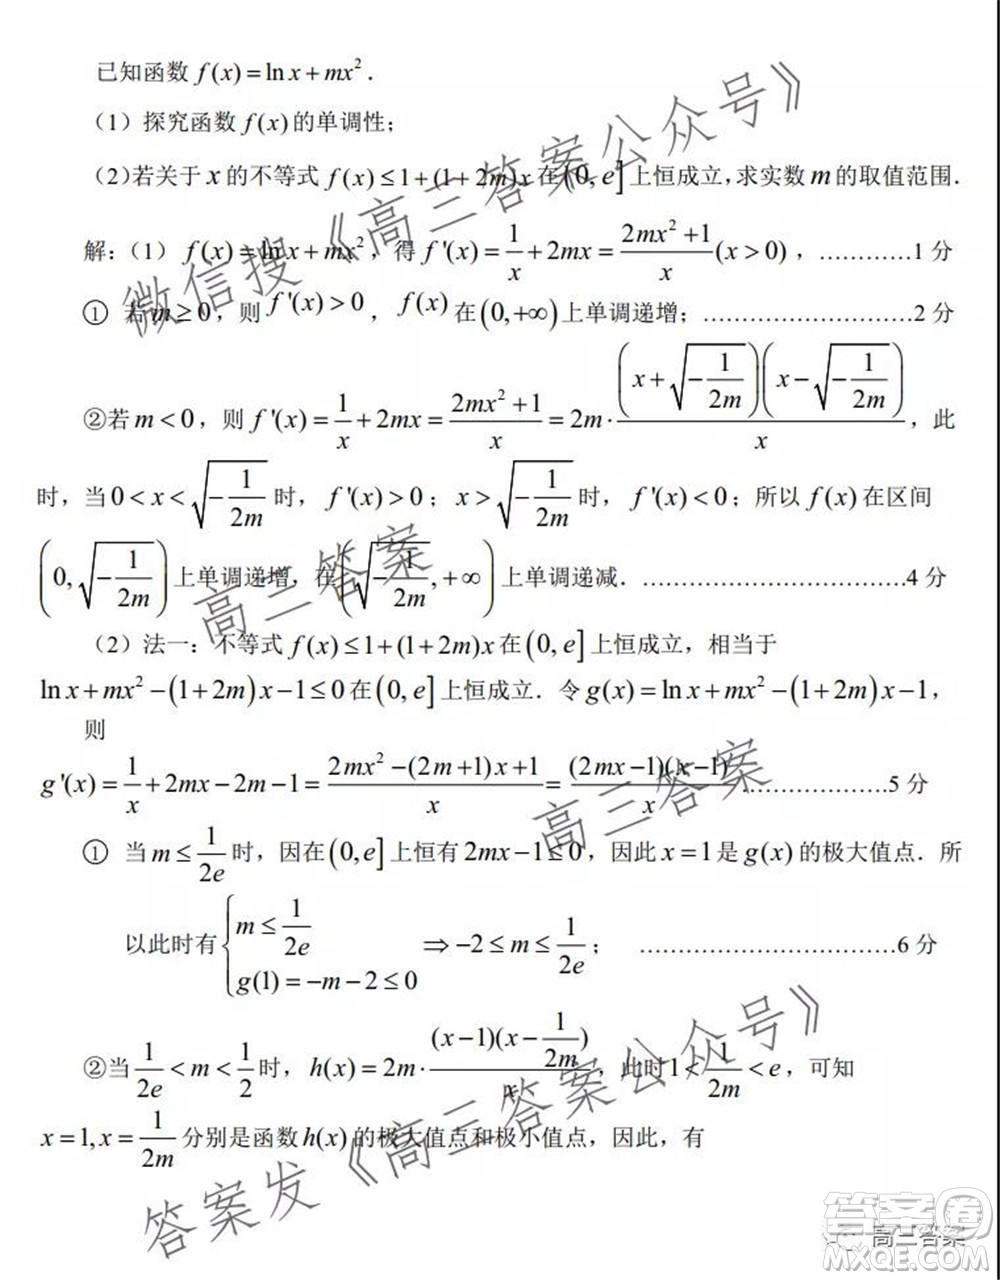 已知函数 f(x)=ln x+mx².
（1）探究函数 f(x) 的单调性；
(2)若关于 x 的不等式 f(x)≤1+(1+2m)x 在(0,e]上恒成立,求实数 m 的取值范围.
解:（1） f(x)=ln x+mx², 得 f'(x)=1/x+2mx=(2mx²+1)/x(x>0) ，…………1 分
① 若 m≥0，则 f'(x)>0 ，f(x) 在(0,+∞)上单调递增；……………………2 分
②若 m<0，则 f'(x)=1/x+2mx=(2mx²+1)/x=2m·(x+√(-1/2m))(x-√(-1/2m))/x，此
时，当 0<x<√(-1/2m) 时，f'(x)>0；x>√(-1/2m) 时，f'(x)<0；所以 f(x) 在区间
(0,√(-1/2m))上单调递增，在(√(-1/2m),+∞)上单调递减．……………………………4 分
（2）法一：不等式 f(x)≤1+(1+2m)x 在(0,e]上恒成立，相当于
ln x+mx²-(1+2m)x-1≤0 在(0,e]上恒成立．令 g(x)=ln x+mx²-(1+2m)x-1，
则
g'(x)=1/x+2mx-2m-1=(2mx²-(2m+1)x+1)/x=(2mx-1)(x-1)/x………………5 分
① 当 m≤1/2e 时，因在(0,e]上恒有 2mx-1≤0，因此 x=1 是 g(x) 的极大值点．所
以此时有{m≤1/2e
g(1)=-m-2≤0 ⇒-2≤m≤1/2e； ……………………………6 分
②当 1/2e<m<1/2 时，h(x)=2m·(x-1)(x-1/2m)/x，此时1<1/2m<e，可知
x=1,x=1/2m 分别是函数 h(x) 的极大值点和极小值点，因此，有
微信搜《高三答案公众号》
高三答案
高三答案
答案发《高三答案公众号》
高三答案
答案圈
MXQE.COM